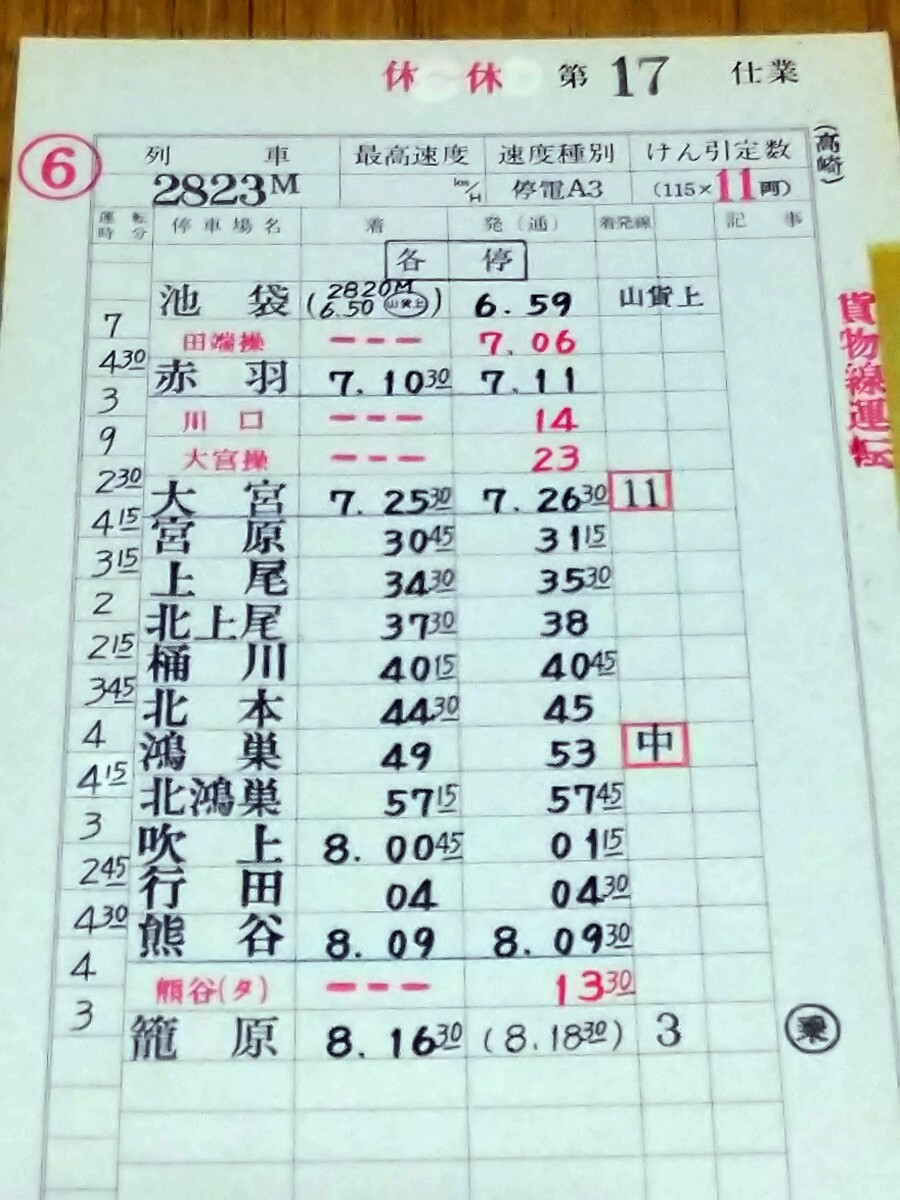 休〜休 第 17 仕業
(高崎)
6
列 車 最高速度 速度種別 けん引定数
2823M km/H 停電A3 (115×11両)
運転時分 停車場名 着 発(通) 着発線 記事
各 停
池袋 (2820M 6.50 山貨上) 6.59 山貨上
7
田端操 ーーー 7.06
430
赤羽 7.1030 7.11
3
川口 ーーー 14
9
大宮操 ーーー 23
230
大宮 7.2530 7.2630 11
415
宮原 3045 3115
315
上尾 3430 3530
2
北上尾 3730 38
215
桶川 4015 4045
345
北本 4430 45
4
鴻巣 49 53 中
415
北鴻巣 5715 5745
3
吹上 8.0045 0115
245
行田 04 0430
430
熊谷 8.09 8.0930
4
熊谷(タ) ーーー 1330
3
籠原 8.1630 (8.1830) 3 乗
貨物線運転